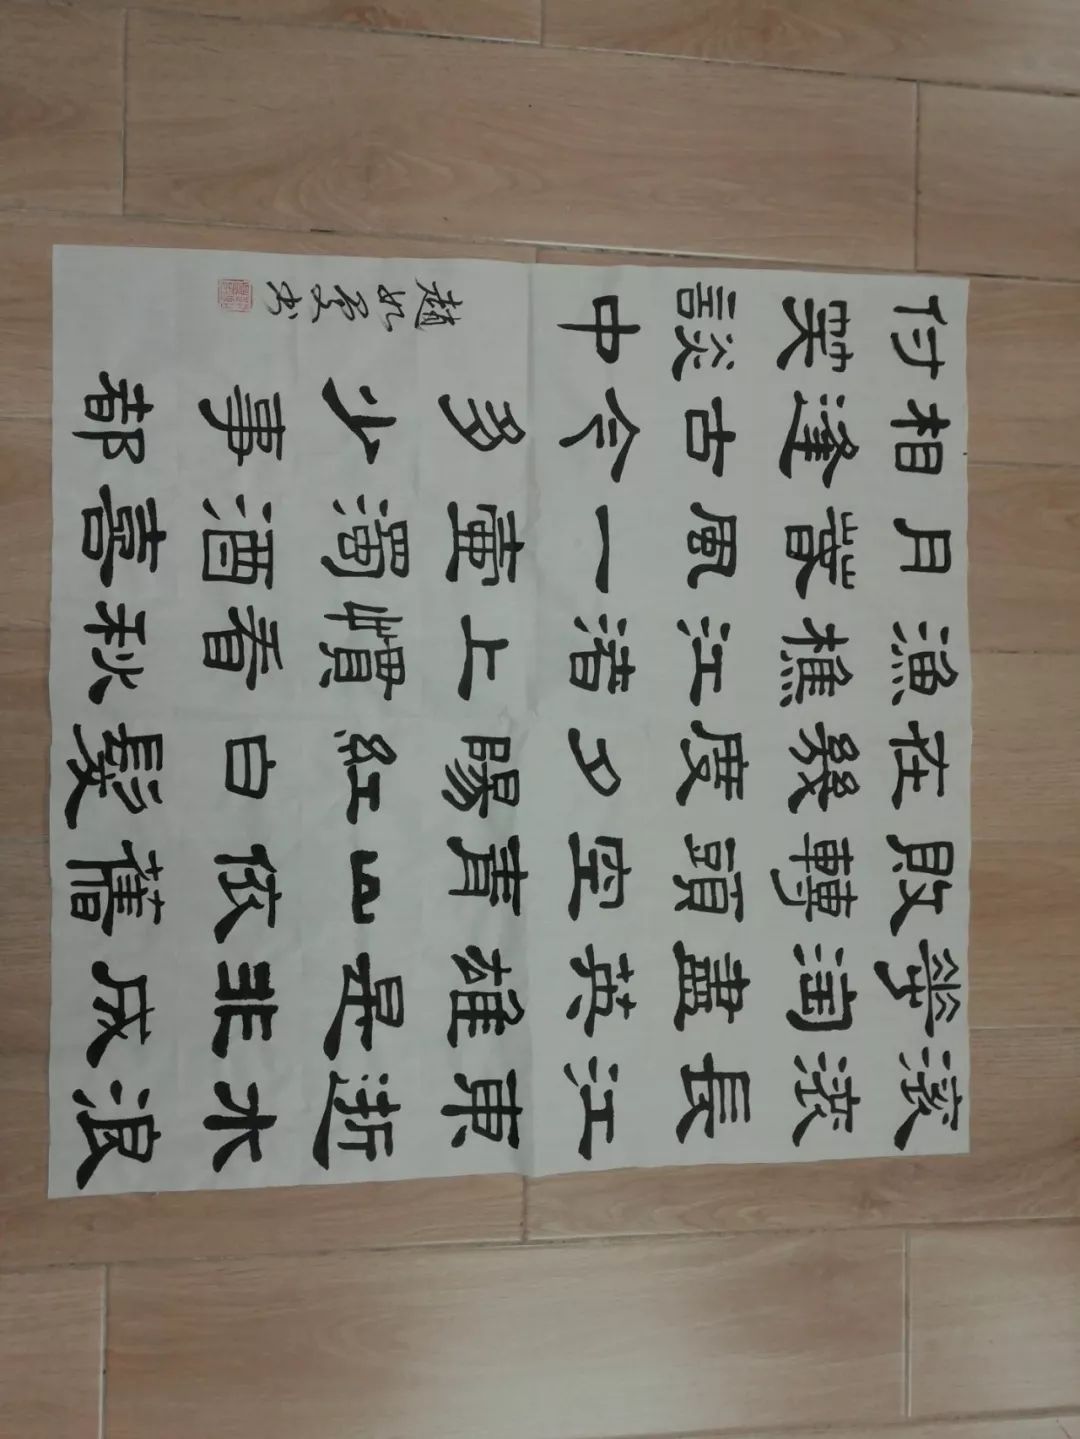 滾滾長江東逝水浪
華淘盡英雄是非成
敗轉頭空青山依舊
在幾度夕陽紅白髮
漁樵江渚上慣看秋
月春風一壺濁酒喜
相逢古今多少事都
付笑談中
趙如書